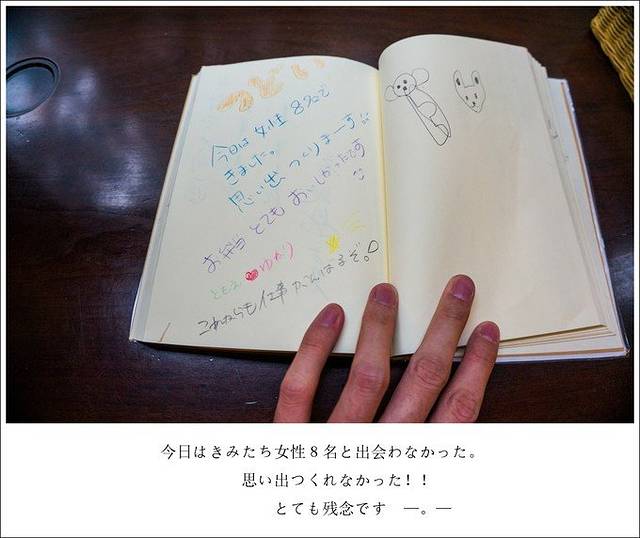 つどい
今日は女性8名で
きました。
思い出つくりまーす!!
お弁当とてもおいしかったです
ともえ ゆかり
これからも仕事がんばるぞ。
今日はきみたち女性８名と出会わなかった。
思い出つくれなかった！！
とても残念です　―。―